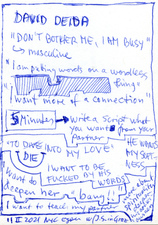 DAVID DEIDA
"DON'T BOTHER ME, I AM BUSY"
↳ masculine
"I am putting words on a wordless
thing"
"I want more of a connection"
5 Minutes → Write a script what
you want from your
partner
"TO DIVE INTO MY LOVE"
DIE
HE WANTS
MY SELF-
LESS
I WANT TO BE
FUCKED BY HIS
WORDS
I want to
deepen her
I want to teach my partner
II 2021